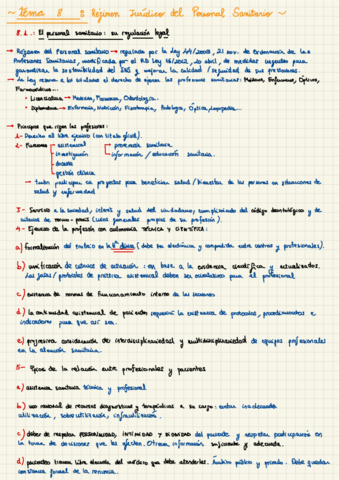 ~ Tema 8 : Régimen Jurídico del Personal Sanitario ~
8.1.- El personal sanitario: su regulación legal
→ Régimen del Personal sanitario → regulado por la ley 44/2003, 21 nov. de Ordenación de las
Profesiones Sanitarias, modificada por el RD Ley 16/2012, 20 abril, de medidas urgentes para
garantizar la sostenibilidad del SNS y mejorar la calidad / seguridad de sus prestaciones.
→ La ley reserva a los titulados el derecho de ejercer las profesiones sanitarias: Médicos, Enfermeros, Ópticos,
Farmacéuticos...
• Licenciatura → Medicina, Farmacia, Odontología...
• Diplomatura → Enfermería, Nutrición, Fisioterapia, Podología, Óptica, Logopedia...
→ Principios que rigen las profesiones:
1- Derecho al libre ejercicio (con título oficial).
2- Funciones asistencial prevención sanitaria
investigación información / educación sanitaria.
docencia
gestión clínica
→ tb participan en proyectos para beneficiar salud / bienestar de las personas en situaciones de
salud y enfermedad
3- Servicio a la sociedad, interés y salud del ciudadano, cumplimiento del código deontológico y de
criterios de norma-praxis (usos generales propios de su profesión).
4- Ejercicio de la profesión con autonomía TÉCNICA y CIENTÍFICA:
a) formalización del trabajo en la Hª clínica (debe ser electrónica y compartida entre centros y profesionales).
b) unificación de criterios de actuación: en base a la evidencia científica y actualizados.
Las guías / protocolos de práctica asistencial deben ser orientativos para el profesional
c) existencia de normas de funcionamiento interno de los servicios
d) la continuidad asistencial de pacientes requerirá la existencia de protocolos, procedimientos e
indicadores para que así sea.
e) progresiva consideración de interdisciplinariedad y multidisciplinariedad de equipos profesionales
en la atención sanitaria.
5- Ejercicio de la relación entre profesionales y pacientes
a) asistencia sanitaria técnica y profesional
b) uso racional de recursos diagnósticos y terapéuticos a su cargo: evitar inadecuada
utilización, sobreutilización, infrautilización.
c) deber de respetar PERSONALIDAD, INTIMIDAD Y DIGNIDAD del paciente y respetar participación en
la toma de decisiones que les afecten. Ofrecer información suficiente y adecuada.
d) pacientes tienen libre elección del médico que debe atenderles. Ámbito público y privado. Debe quedar
constancia formal de la renuncia.